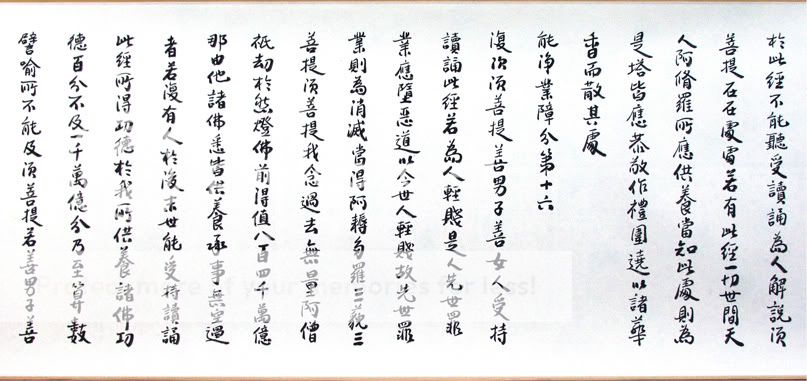 於此經不能聽受讀誦為人解說須
菩提在在處處若有此經一切世間天
人阿脩羅所應供養當知此處則為
是塔皆應恭敬作禮圍遶以諸華
香而散其處
能淨業障分第十六
復次須菩提善男子善女人受持
讀誦此經若為人輕賤是人先世罪
業應墮惡道以今世人輕賤故先世罪
業則為消滅當得阿耨多羅三藐三
菩提須菩提我念過去無量阿僧
祇劫於然燈佛前得值八百四千萬億
那由他諸佛悉皆供養承事無空過
者若復有人於後末世能受持讀誦
此經所得功德於我所供養諸佛功
德百分不及一千萬億分乃至算數
譬喻所不能及須菩提若善男子善
Protect more of your memories for less!